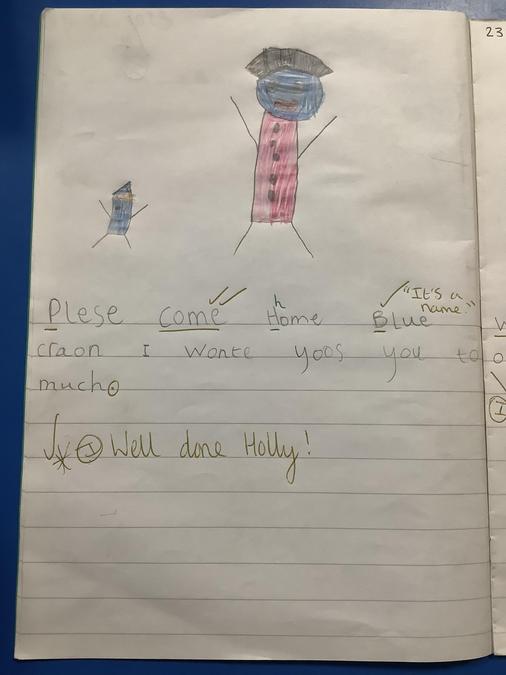 23
"It's a
name."
h
Plese come Home Blue
craon I wonte yoos you to
much.
I Well done Holly!